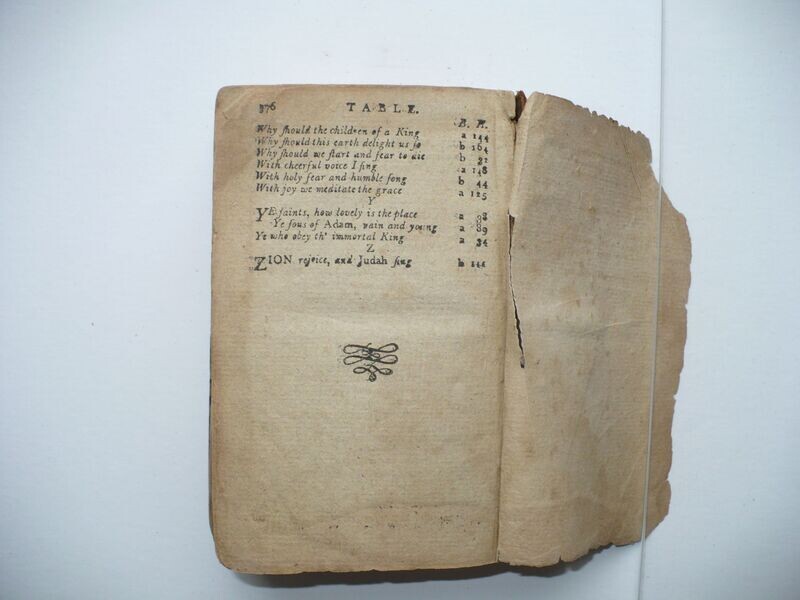 376 TABLE.
B. H.
Why ſhould the children of a King a 144
Why ſhould this earth delight us ſo b 164
Why ſhould we ſtart and fear to die b 31
With cheerful voice I ſing a 148
With holy fear and humble ſong b 44
With joy we meditate the grace a 125
Y
YE ſaints, how lovely is the place a
Ye ſons of Adam, vain and young a 89
Ye who obey th' immortal King a 34
Z
ZION rejoice, and Judah ſing b